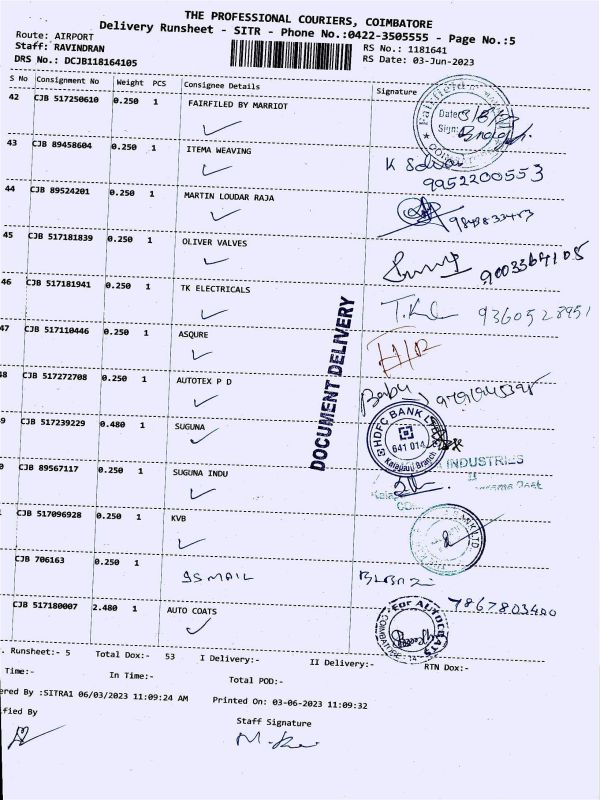 THE PROFESSIONAL COURIERS, COIMBATORE
Delivery Runsheet - SITR - Phone No.:0422-3505555 - Page No.:5
Route: AIRPORT
Staff: RAVINDRAN
RS No.: 1181641
DRS No.: DCJB118164105
RS Date: 03-Jun-2023
S No Consignment No Weight PCS Consignee Details Signature
42 CJB 517250610 0.250 1 FAIRFILED BY MARRIOT
Date:
Sign:
43 CJB 89458604 0.250 1 ITEMA WEAVING
9952200553
44 CJB 89524201 0.250 1 MARTIN LOUDAR RAJA
45 CJB 517181839 0.250 1 OLIVER VALVES
9003364105
46 CJB 517181941 0.250 1 TK ELECTRICALS
9360528951
47 CJB 517110446 0.250 1 ASQURE
DOCUMENT DELIVERY
48 CJB 517272708 0.250 1 AUTOTEX P D
Babu
9 CJB 517239229 0.480 1 SUGUNA
HDFC BANK
641 014
Kalapatti Branch
0 CJB 89567117 0.250 1 SUGUNA INDU
INDUSTRIES
CJB 517096928 0.250 1 KVB
BANK LTD.
CJB 706163 0.250 1 ISMAIL
7867803400
CJB 517180007 2.480 1 AUTO COATS
For AUTOCOATS
. Runsheet:- 5 Total Dox:- 53 I Delivery:- II Delivery:- RTN Dox:-
Time:- In Time:- Total POD:-
ered By :SITRA1 06/03/2023 11:09:24 AM Printed On: 03-06-2023 11:09:32
ified By Staff Signature